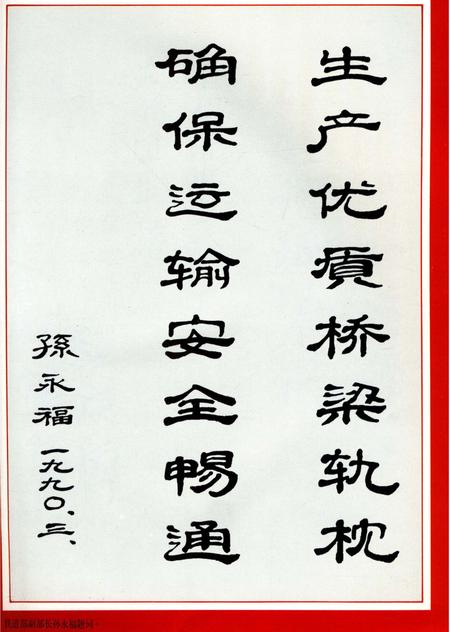 生产优质桥梁轨枕
确保运输安全畅通
孫永福 一九九〇.三.
铁道部副部长孙永福题词。